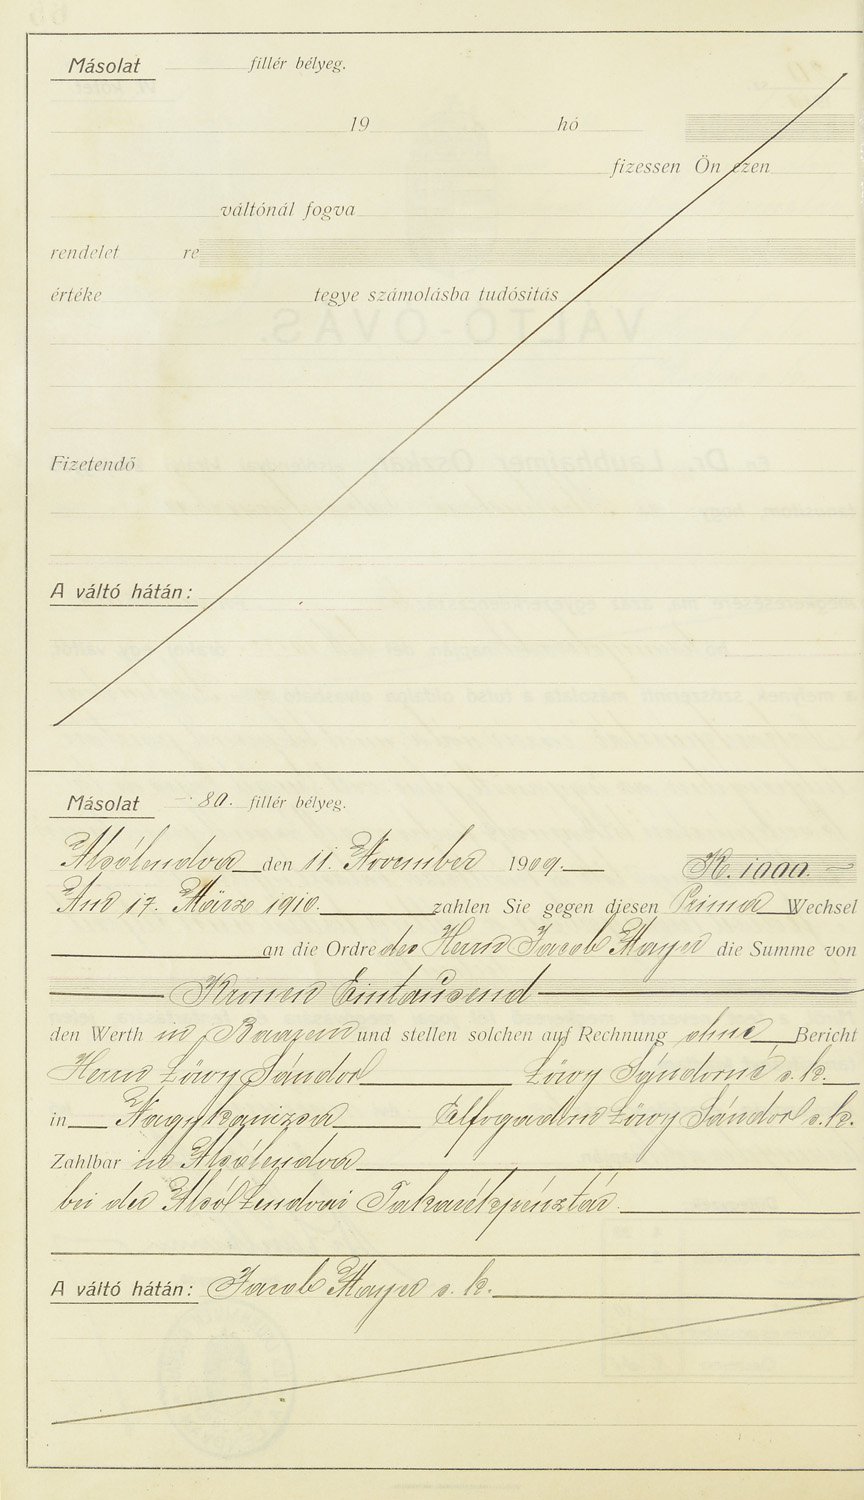 Másolat fillér bélyeg.
19 hó
fizessen Ön ezen
váltónál fogva
rendelet re
értéke tegye számolásba tudósítás
Fizetendő
A váltó hátán:
Másolat 80. fillér bélyeg.
Alsólendva den 11. November 1909. K. 1000.
Am 17. März 1910. zahlen Sie gegen diesen Prima Wechsel
an die Ordre des Herrn Jacob Mayer die Summe von
Kronen Eintausend
den Werth in Baarem und stellen solchen auf Rechnung ohne Bericht
Herrn Löwy Sándor Löwy Sándorné s. k.
in Nagykanizsa Elfogadom Löwy Sándor s. k.
Zahlbar in Alsólendva
bei der Alsó Lendvai Takarékpénztár.
A váltó hátán: Jacob Mayer s. k.